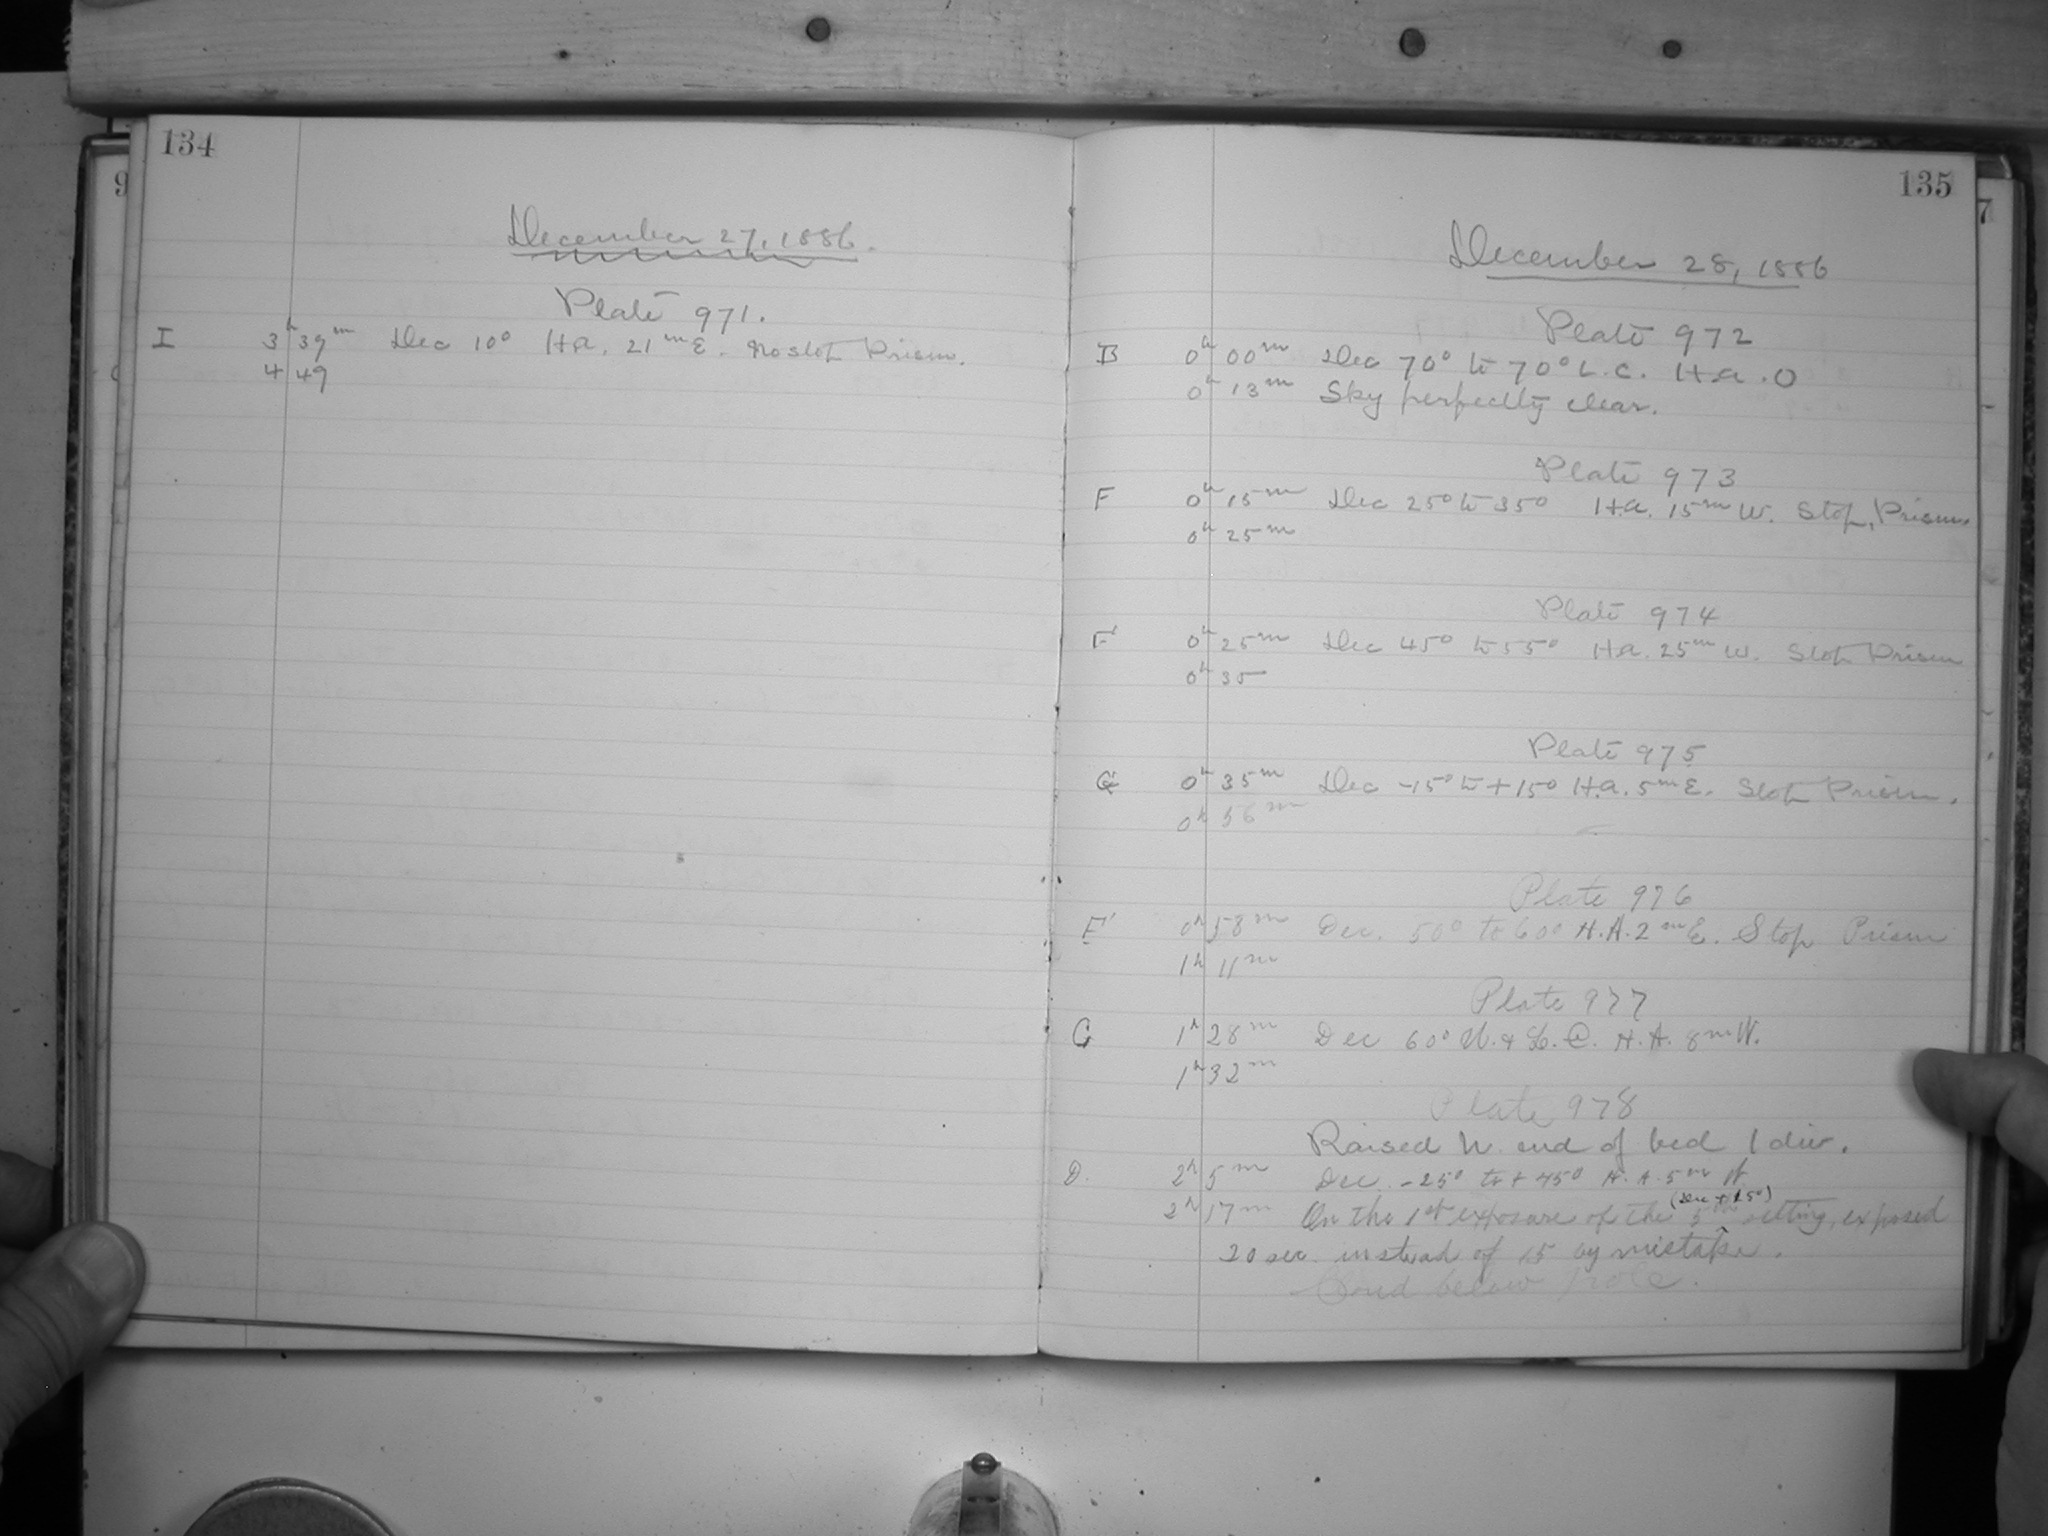 134
December 27, 1886.
Plate 971.
I 3h 39m Dec 10° H.a. 21m E. No stop Prism.
4 49
135
December 28, 1886
Plate 972
B 0h 00m Dec 70° to 70° L.C. H.a. 0
0h 13m Sky perfectly clear.
Plate 973
F 0h 15m Dec 25° to 35° H.a. 15m W. Stop, Prism.
0h 25m
Plate 974
F' 0h 25m Dec 45° to 55° H.a. 25m W. Stop Prism
0h 35
Plate 975
0h 35m Dec -15° to +15° H.a. 5m E. Stop Prism.
0h 56m
Plate 976
0h 58m Dec. 50° to 60° H.A. 2m E. Stop Prism
1h 11m
Plate 977
C 1h 28m Dec 60° U. & L. C. H.A. 8m W.
1h 32m
Plate 978
Raised N. end of bed 1 div.
D. 2h 5m Dec. -25° to +45° H.A. 5m W
(Dec +15°)
2h 17m On the 1st exposure of the 5th setting, exposed
20 sec. instead of 15 by mistake.
below pole.